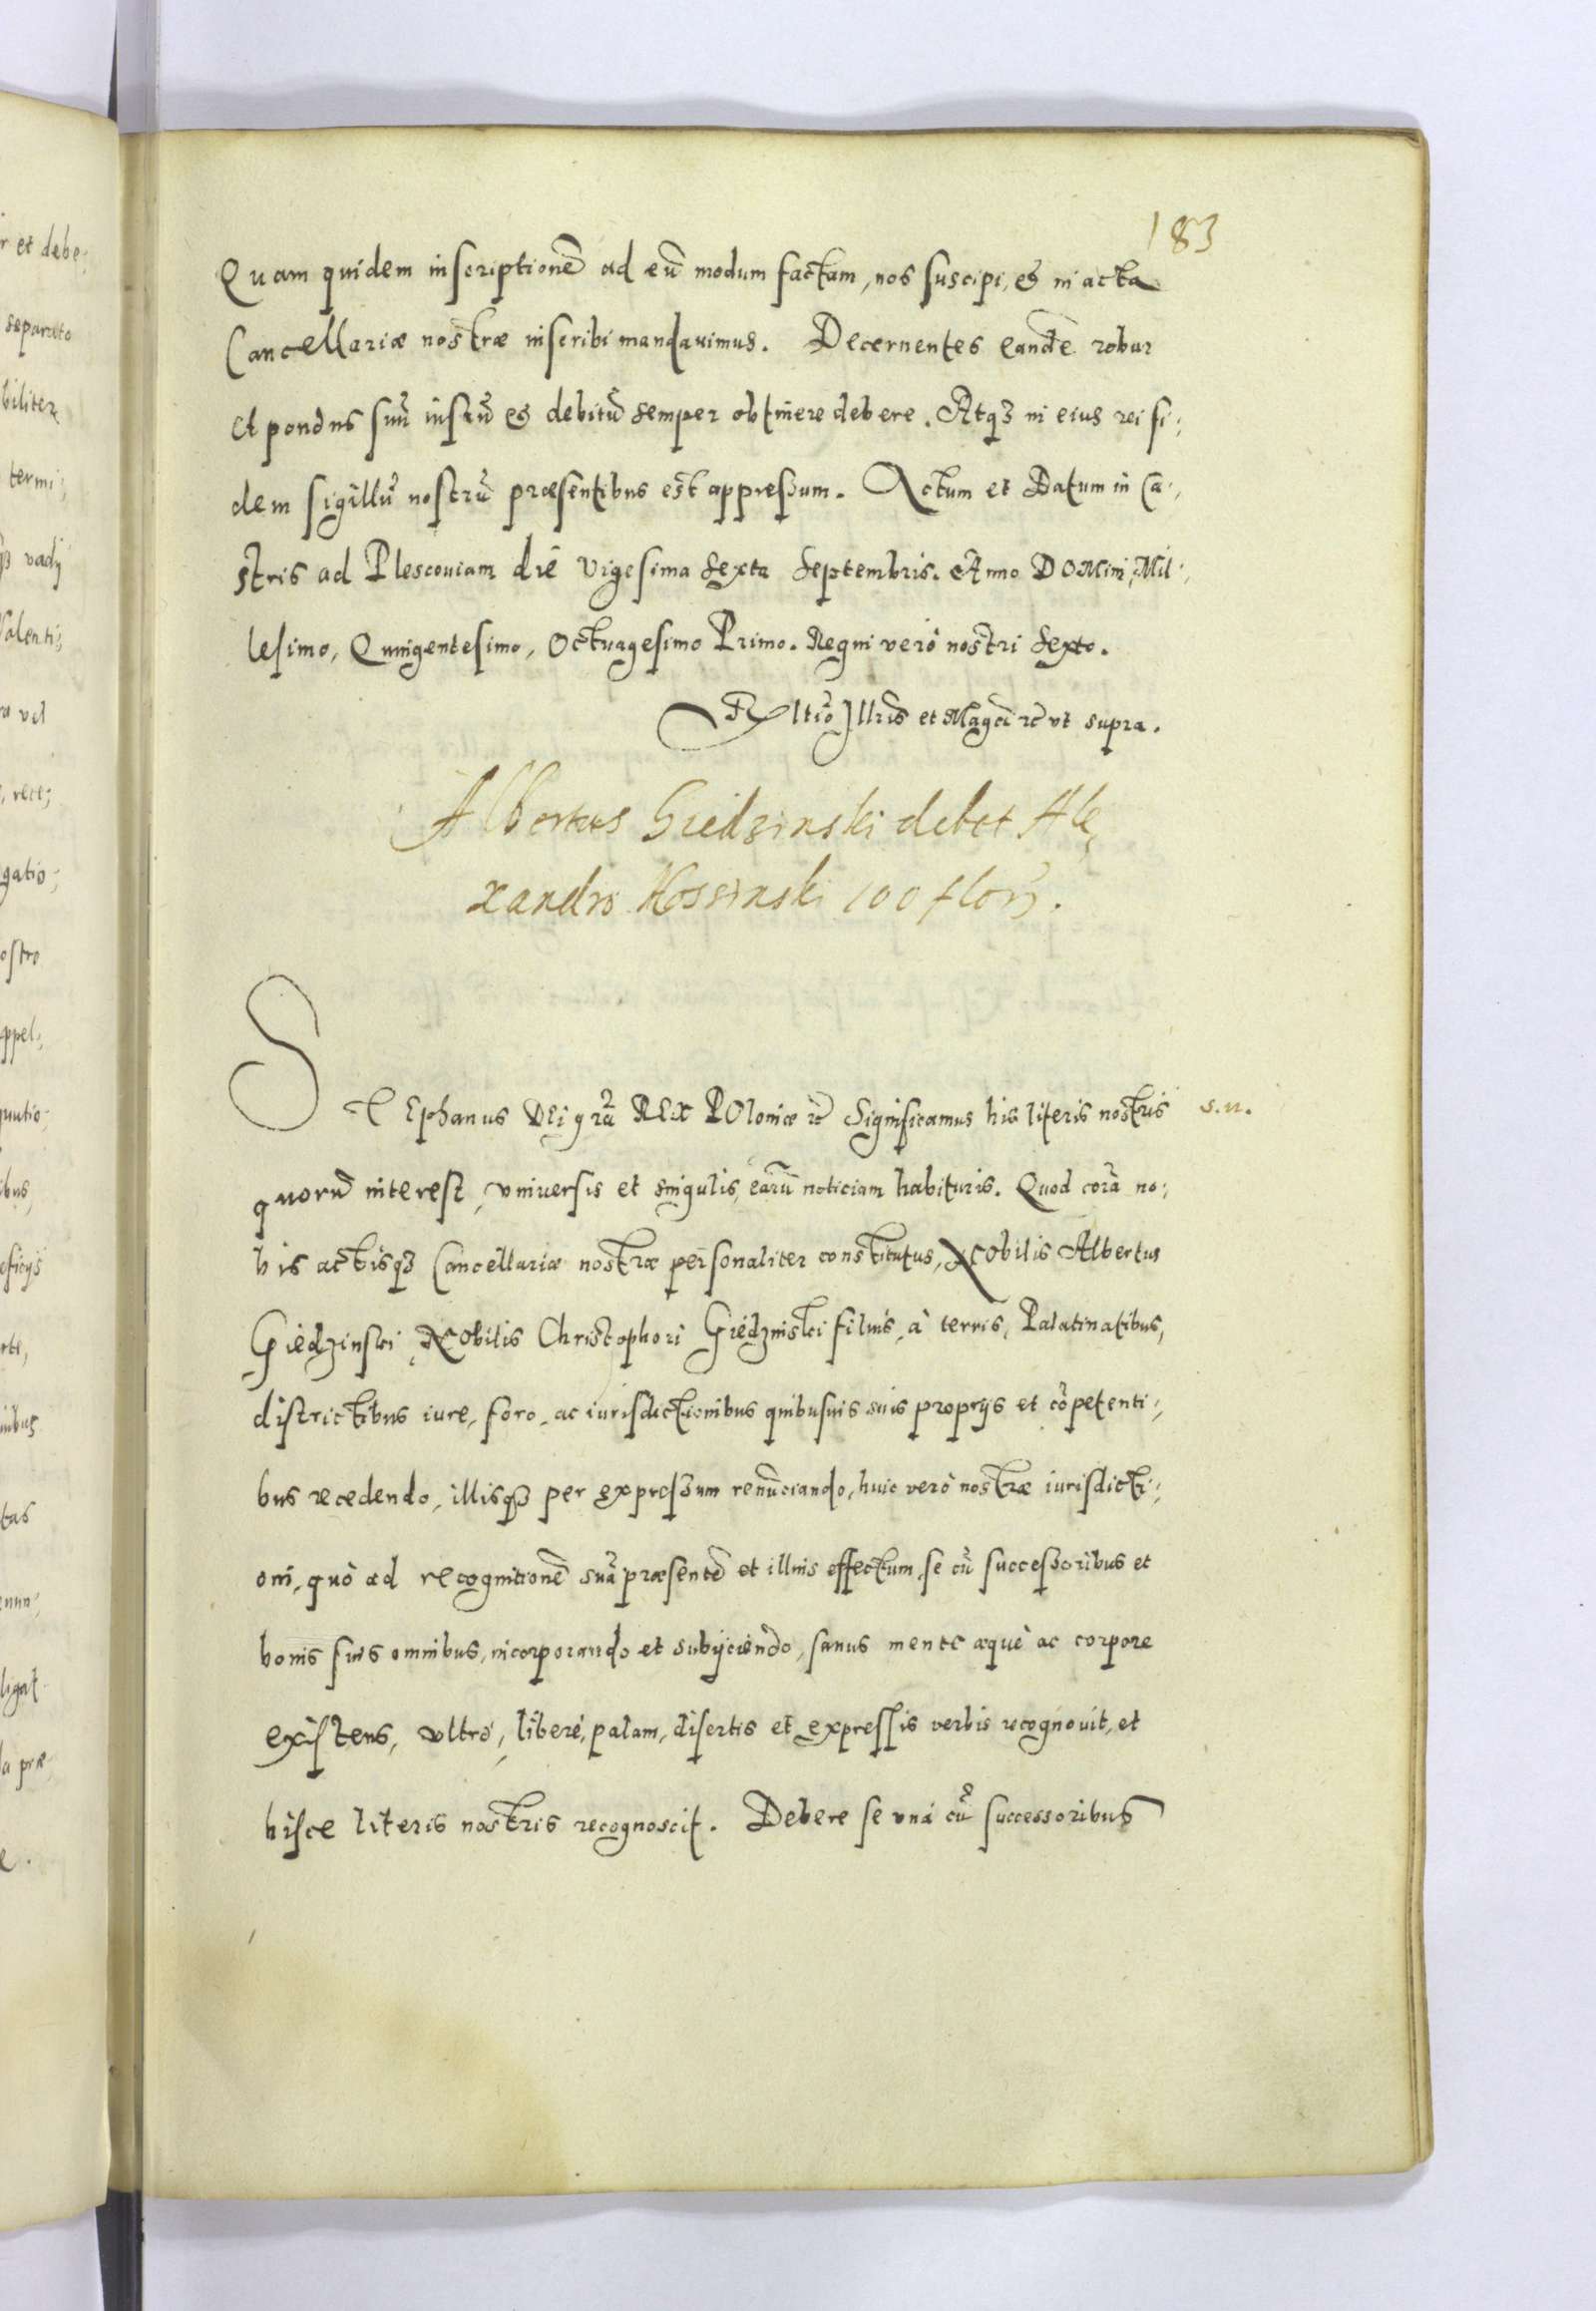 183
Quam quidem inscriptionẽ ad eũ modum factam, nos suscipi, et in acta
Cancellariæ nostræ inscribi mandauimus. Decernentes eandẽ robur
et pondus suũ iustũ et debitũ semper obtinere debere. Atqꝫ in eius rei fi;
dem sigillũ nostrũ præsentibus est appressum. Actum et Datum in Ca;
stris ad Plescouiam die Vigesima sexta Septembris. Anno DOMini, Mil;
lesimo, Quingentesimo, Octuagesimo Primo. Regni verò nostri sexto.
Rltio Illris et Magci ꝛc vt supra.
Albertus Giedzinski debet Ale;
xandro Kossinski 100 flor.
STEphanus DEi grã REX POloniæ ꝛc Significamus his literis nostris
s.n.
quorũ interest, vniuersis et singulis, earũ noticiam habituris. Quod corã no;
bis actisqꝫ Cancellariæ nostræ personaliter constitutus, NObilis Albertus
Giedzinski, NObilis Christophori Giedzinski filius, à terris, Palatinatibus,
districtibus iure, foro, ac iurisdictionibus quibusuis suis proprijs et cõpetenti;
bus recedendo, illisqꝫ per expressum renũciando, huic verò nostræ iurisdicti;
oni, quò ad recognitionẽ suã præsentẽ et illius effectum, se cũ successoribus et
bonis suis omnibus, incorporando et subijciendo, sanus mente æquè ac corpore
existens, vltrò, liberè, palam, disertis et expressis verbis recognouit, et
hisce literis nostris recognoscit. Debere se vnà cũ successoribus